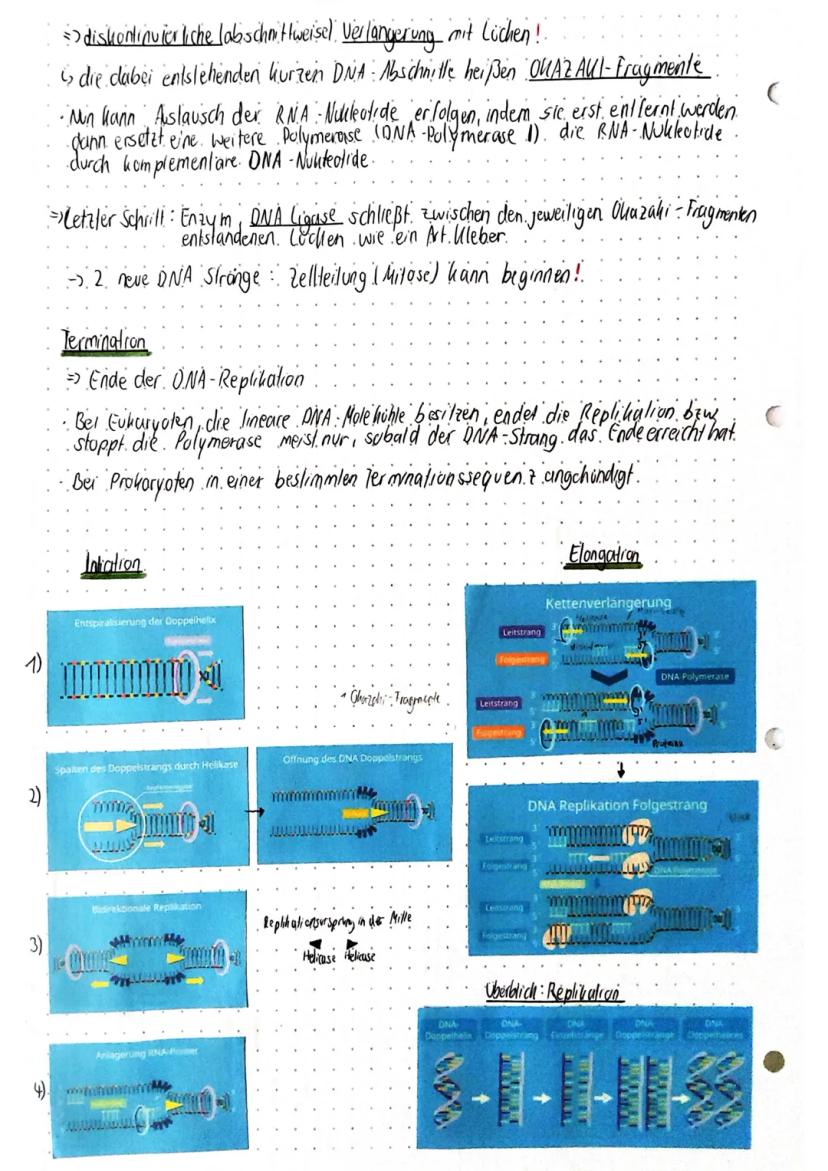 => diskontinuierliche (abschnittweise) Verlängerung mit Lücken!
↳ die dabei entstehenden kurzen DNA-Abschnitte heißen OKAZAKI-Fragmente
· Nun kann Austausch der RNA-Nukleotide erfolgen, indem sie erst entfernt werden
dann ersetzt eine weitere Polymerase (DNA-Polymerase I) die RNA-Nukleotide
durch komplementäre DNA-Nukleotide.
=> Letzter Schritt: Enzym, DNA Ligase schließt zwischen den jeweiligen Okazaki-Fragmenten
entstandenen Lücken wie ein Art Kleber.
-> 2 neue DNA Stränge: Zellteilung (Mitose) kann beginnen!
Termination
=> Ende der DNA-Replikation
· Bei Eukaryoten, die lineare DNA-Moleküle besitzen, endet die Replikation bzw
stoppt die Polymerase meist nur, sobald der DNA-Strang das Ende erreicht hat.
· Bei Prokaryoten in einer bestimmten Terminationssequenz angekündigt.
Intiation
1)
Entspiralisierung der Doppelhelix
2)
Spalten des Doppelstrangs durch Helikase
Öffnung des DNA Doppelstrangs
3)
Bidirektionale Replikation
Replikationsursprung in der Mitte
Helicase Helicase
4)
Anlagerung RNA-Primer
Okazaki-Fragmente
Elongation
Kettenverlängerung
Leitstrang
Folgestrang
DNA-Polymerase
Leitstrang
Folgestrang
DNA Replikation Folgestrang
Leitstrang
Folgestrang
DNA Polymerase
Leitstrang
Folgestrang
Überblick: Replikation
DNA-Doppelhelix
DNA-Doppelstrang
DNA Einzelstränge
DNA-Doppelstränge
DNA-Doppelhelices